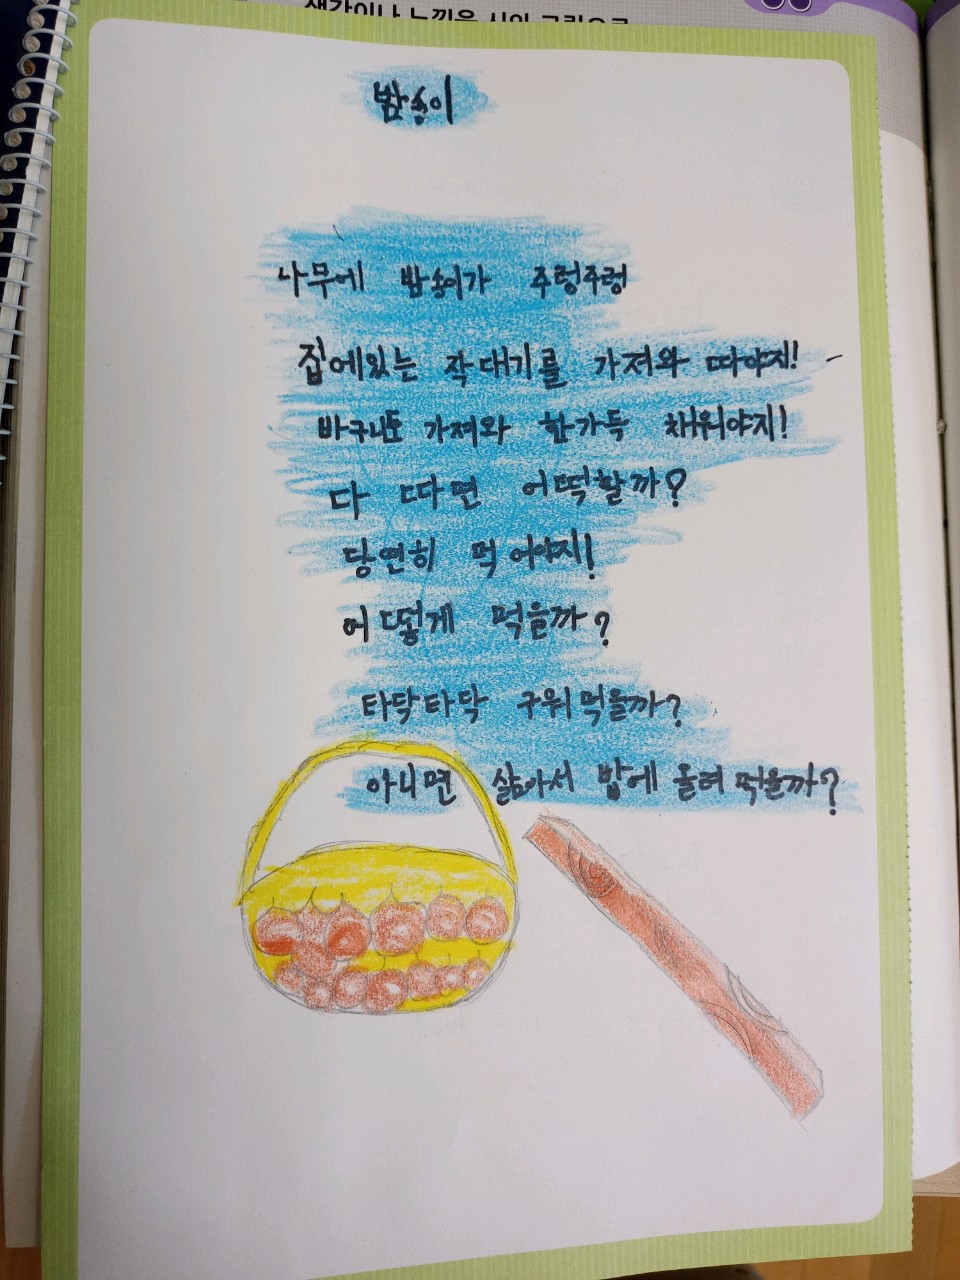 밤송이
나무에 밤송이가 주렁주렁
집에있는 작대기를 가져와 따야지!
바구니도 가져와 한가득 채워야지!
다 따면 어떡할까?
당연히 먹어야지!
어떻게 먹을까?
타닥타닥 구워먹을까?
아니면 삶아서 밥에 올려 먹을까?